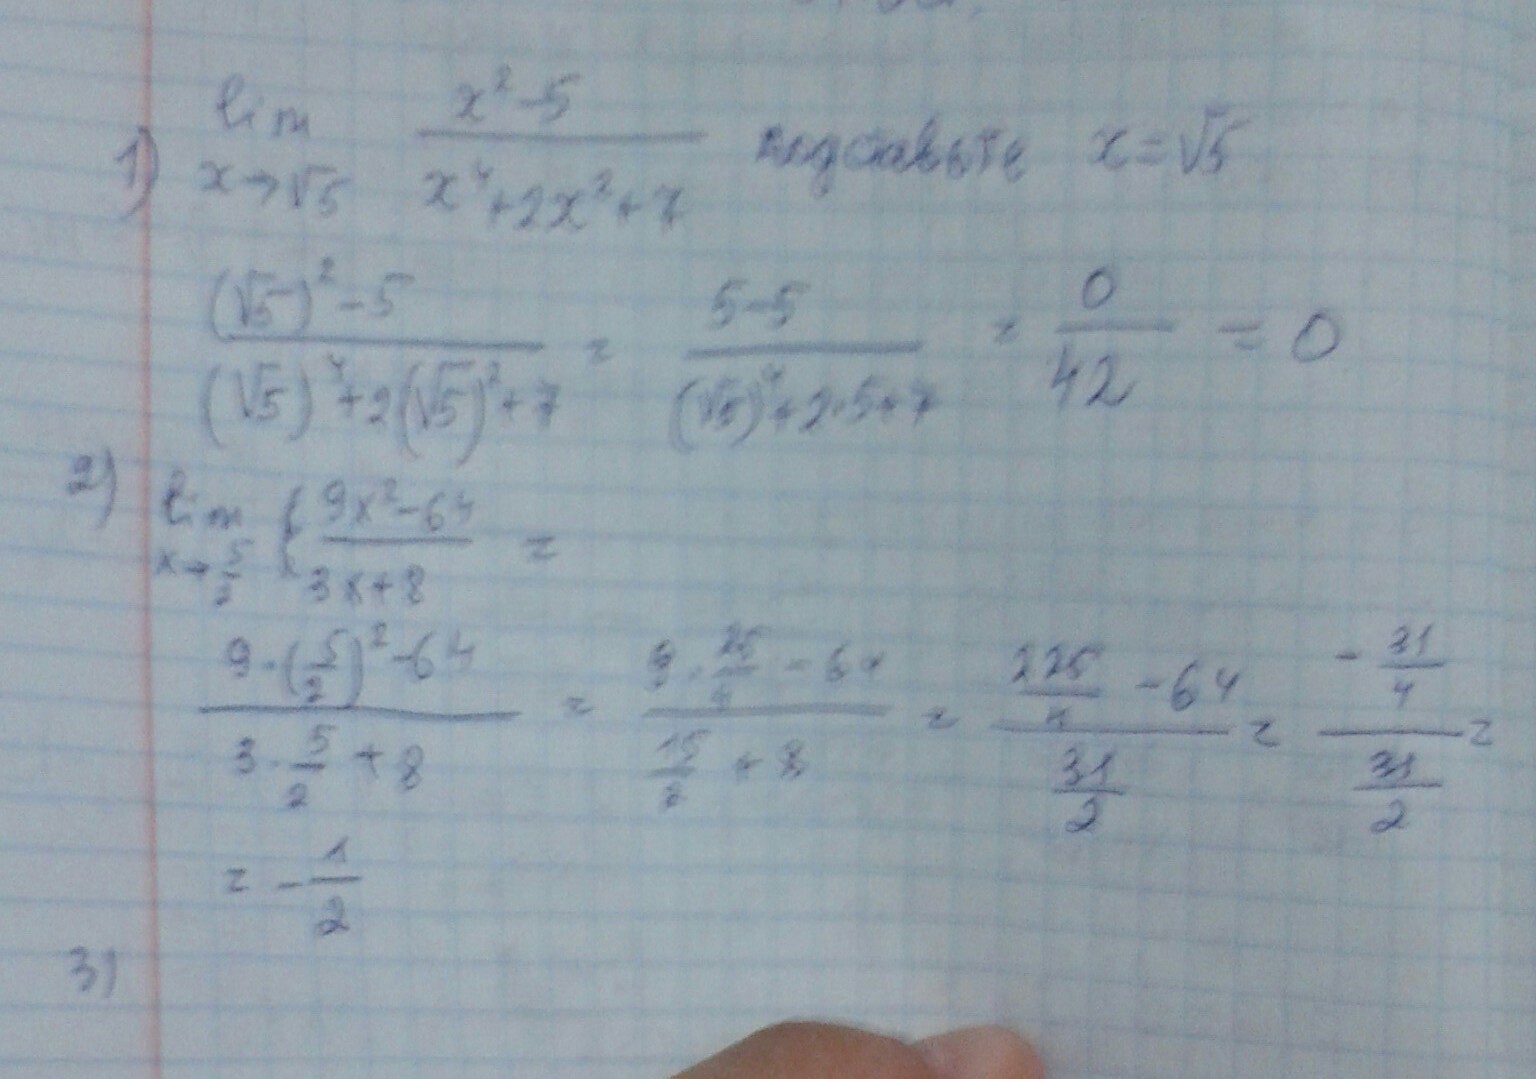 1) lim x→√5 (x² - 5)/(x⁴ + 2x² + 7) подставьте x = √5
((√5)² - 5)/((√5)⁴ + 2(√5)² + 7) = (5 - 5)/((√5)⁴ + 2·5 + 7) = 0/42 = 0
2) lim x→5/2 (9x² - 64)/(3x + 8) =
(9·(5/2)² - 64)/(3·5/2 + 8) = (9·25/4 - 64)/(15/2 + 8) = (225/4 - 64)/(31/2) = (-31/4)/(31/2) =
= -1/2
3)